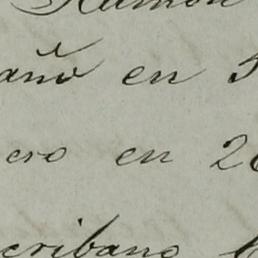 Ramon
año en 5
ero en 26
cribano